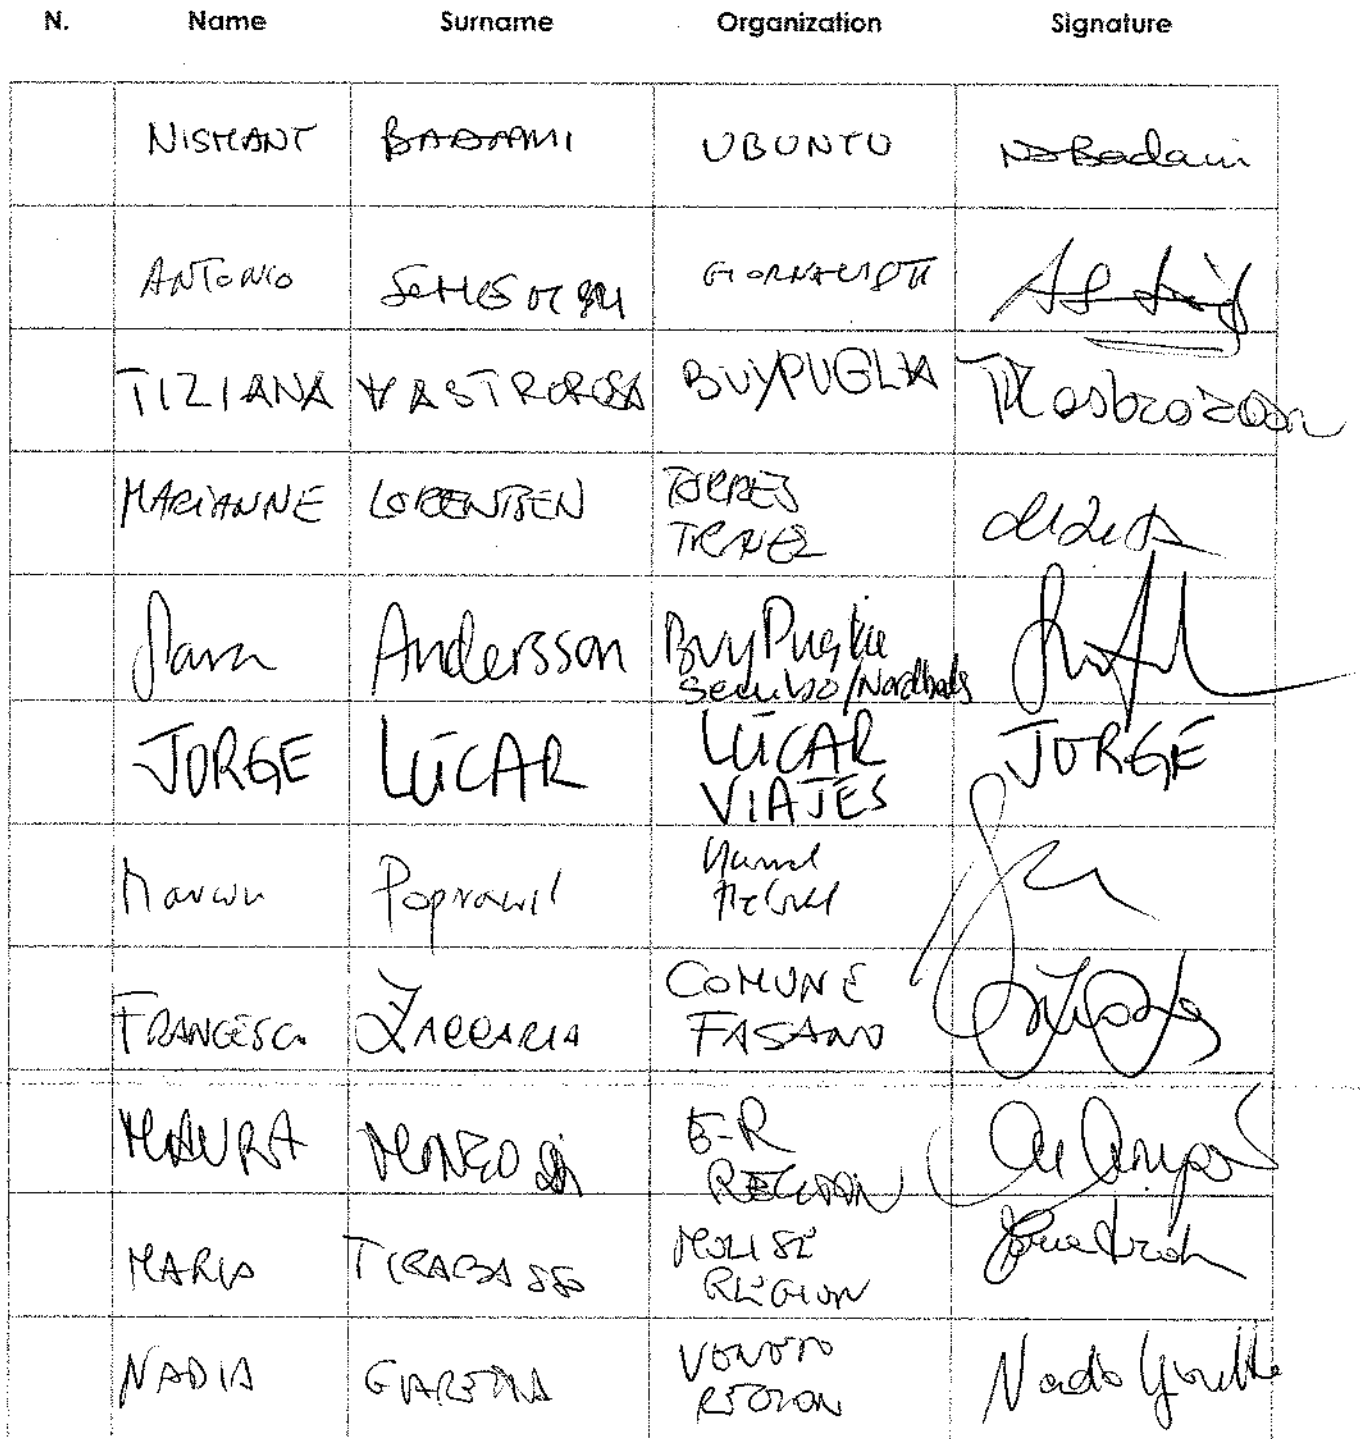 N. Name Surname Organization Signature
NISHANT BADAMI UBUNTU
ANTONIO GIORNALISTA
TIZIANA MASTROROSA BUYPUGLIA
MARIANNE LORENTSEN TORRES
TRAVEL
Sara Andersson BuyPuglia
JORGE LÚCAR LÚCAR VIAJES JORGE
Marcin Poprawil
FRANCESCA ZACCARIA COMUNE
FASANO
MAURA E-R
REGION
MARIO TIRABASSO MOLISE
REGION
NADIA GIARETTA VENETO
REGION